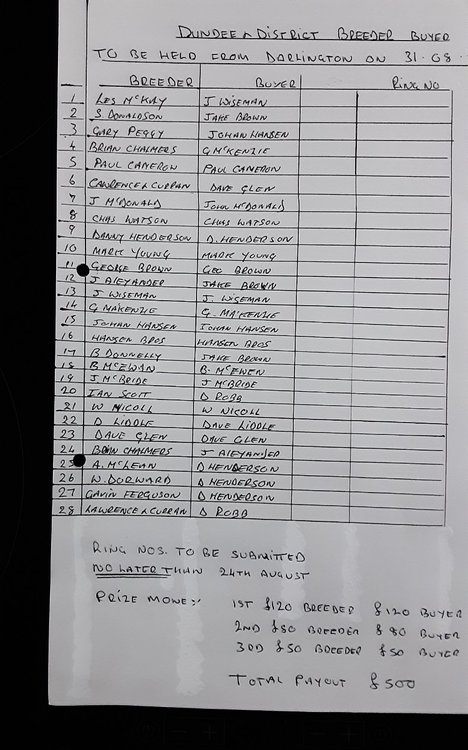 DUNDEE & DISTRICT BREEDER BUYER
TO BE HELD FROM DARLINGTON ON 31.08.
BREEDER BUYER RING NO
1 LES McKAY J WISEMAN
2 S. DONALDSON JAKE BROWN
3 GARY PEGGY JOHAN HANSEN
4 BRIAN CHALMERS G McKENZIE
5 PAUL CAMERON PAUL CAMERON
6 LAWRENCE & CURRAN DAVE GLEN
7 J McDONALD JOHN McDONALD
8 CHAS WATSON CHAS WATSON
9 DANNY HENDERSON D. HENDERSON
10 MARK YOUNG MARK YOUNG
11 GEORGE BROWN GEO BROWN
12 J AlEYANDER JAKE BROWN
13 J WISEMAN J WISEMAN
14 G MAKENZIE G. MAKENZIE
15 JOHAN HANSEN JOHAN HANSEN
16 HANSEN BROS HANSON BROS
17 B DONNELLY JAKE BROWN
18 B McEWAN B. McEWEN
19 J McBRIDE J McBRIDE
20 IAN SCOTT D ROBB
21 W NICOLL W NICOLL
22 D LIDDLE DAVE LIDDLE
23 DAVE GLEN DAVE GLEN
24 BRIAN CHALMERS J AlEYANDER
25 A. McLEAN D HENDERSON
26 W. DORWARD D HENDERSON
27 GAVIN FERGUSON D HENDERSON
28 LAWRENCE & CURRAN D ROBB
RING NOS. TO BE SUBMITTED
NO LATER THAN 24TH AUGUST
PRIZE MONEY:- 1ST £120 BREEDER £120 BUYER
2ND £80 BREEDER £80 BUYER
3RD £50 BREEDER £50 BUYER
TOTAL PAYOUT £500